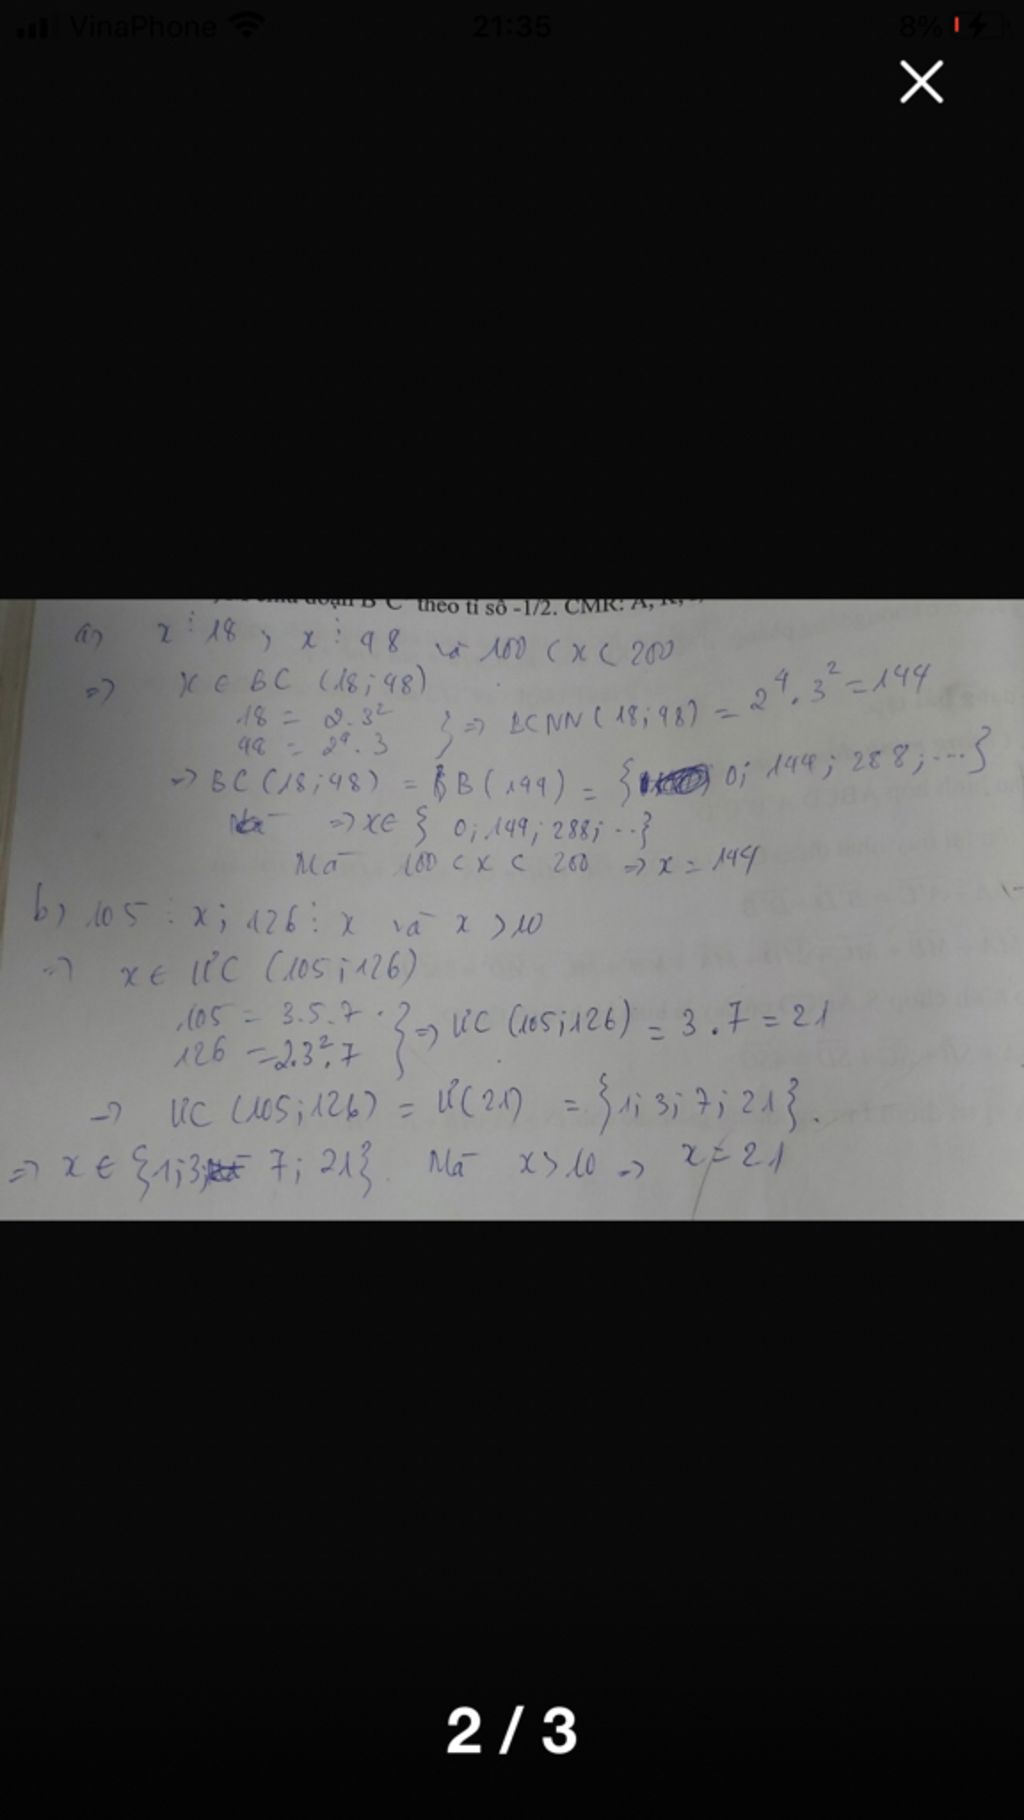 VinaPhone 21:35 8%
đoạn B'C' theo tỉ số -1/2. CMR: A, K,
a) x ⋮ 18 ; x ⋮ 48 và 100 < x < 200
=> x ∈ BC (18; 48)
18 = 2.3²
48 = 2⁴.3 } => BCNN (18; 48) = 2⁴.3² = 144
=> BC (18; 48) = B(144) = { 0; 144; 288; ...}
=> x ∈ { 0; 144; 288; ...}
Mà 100 < x < 200 => x = 144
b) 105 ⋮ x; 126 ⋮ x và x > 10
=> x ∈ ƯC (105; 126)
105 = 3.5.7
126 = 2.3².7 } => ƯC (105; 126) = 3.7 = 21
=> ƯC (105; 126) = Ư(21) = {1; 3; 7; 21}.
=> x ∈ {1; 3; 7; 21}. Mà x > 10 => x = 21
2 / 3